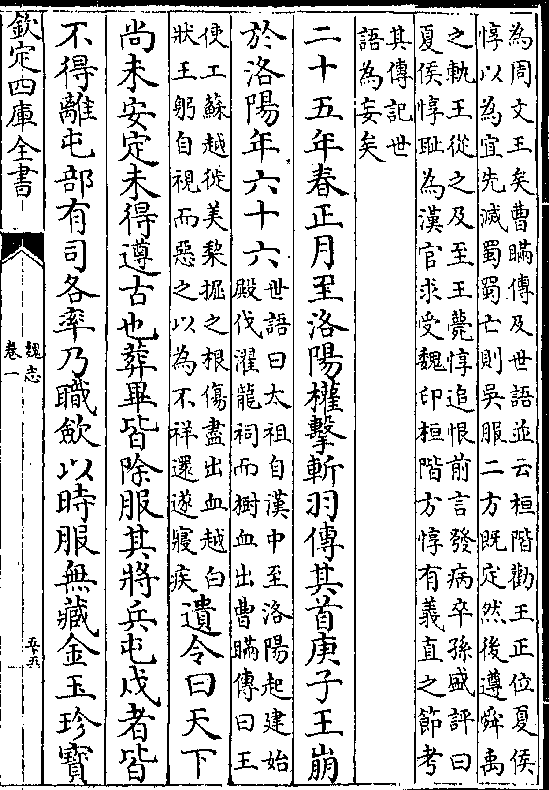 為周文王矣曹瞞傳及世語並云桓階勸王正位夏侯
惇以為宜先滅蜀蜀亡則吳服二方既定然後遵舜禹
之軌王從之及至王薨惇追恨前言發病卒孫盛評曰
夏侯惇恥為漢官求受魏印桓階方惇有義直之節考
其傳記世
語為妄矣
二十五年春正月至洛陽權擊斬羽傳其首庚子王崩
於洛陽年六十六
世語曰太祖自漢中至洛陽起建始
殿伐濯龍祠而樹血出曹瞞傳曰王
使工蘇越徙美梨掘之根傷盡出血越白
狀王躬自視而惡之以為不祥還遂寢疾
遺令曰天下
尚未安定未得遵古也葬畢皆除服其將兵屯戍者皆
不得離屯部有司各率乃職斂以時服無藏金玉珍寶
欽定四庫全書
魏志
卷一
五五